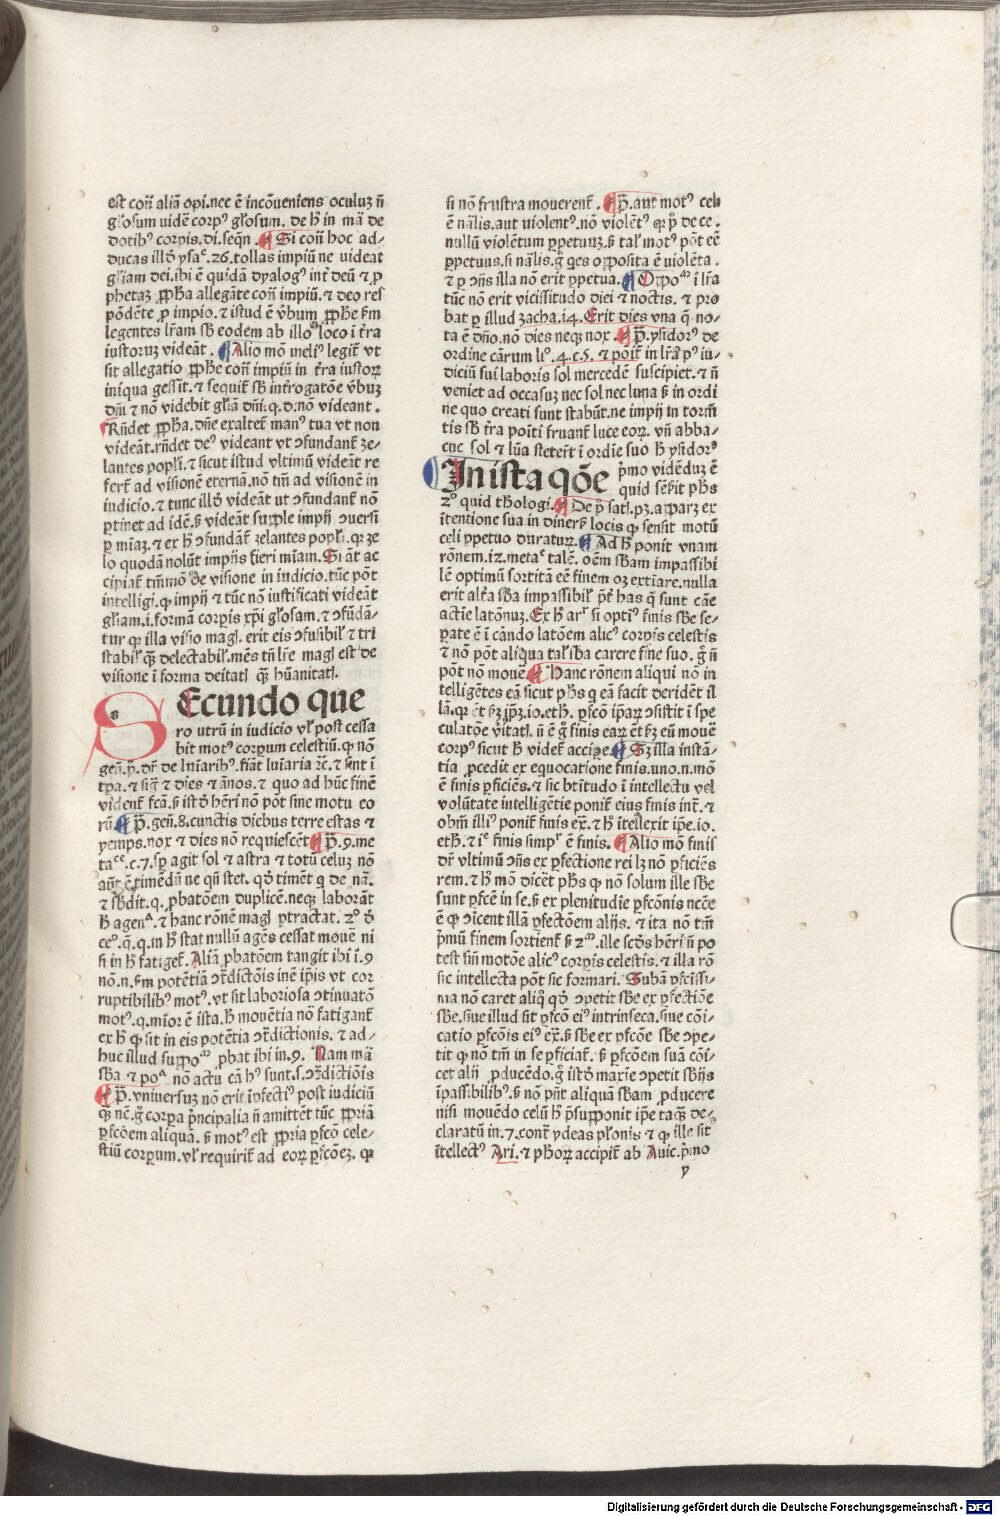 est coñ aliã opi. nec ẽ incõueniens oculuz ñ
gl̃osum uidẽ corpꝰ gl̃osum. de h̃ in mã de
dotibꝰ corpis. di. seq̃n. Si coñ hoc ad-
ducas illđ ysaᵉ. 26. tollas impiũ ne uideat
gl̃iam dei. ibi ẽ quidã dyalogꝰ int̃ deũ ⁊ ꝓ
phetaꝫ ꝓph̃a allegãte coñ impiũ. ⁊ deo res
põdẽte ꝓ impio. ⁊ istud ẽ v̓bum ꝓph̃e s̃m
legentes lr̃am sb̃ eodem ab illoᵐ loco i tr̃a
iustoruz videãt. Alio mõ meliꝰ legit̃ vt
sit allegatio ꝓph̃e coñ impiũ in tr̃a iustoꝝ
iniqua gessit. ⁊ sequit̃ sb̃ int̃rogatõe v̓buz
dñi ⁊ nõ videbit gl̃iã dñi. q. d. nõ videant.
Rñdet ꝓph̃a. dñe exaltet̃ manꝰ tua vt non
videãt. rñdet deꝰ videant vt ɔfundant̃ ze-
lantes popl̃i. ⁊ sicut istud vltimũ videãt re
fert̃ ad visionẽ eternã. nõ tm̃ ad visionẽ in
iudicio. ⁊ tunc illđ videãt ut ɔfundant̃ nõ
ꝑtinet ad idẽ. s̃ videãt supple impij ɔuersi
ꝑ mĩaz. ⁊ ex h̃ ɔfundãt̃ zelantes popl̃i. qꝛ ze
lo quodã nolũt impijs fieri mĩam. Si ãt ac
cipiat̃ tm̃mõ de visione in iudicio. tũc põt
intelligi. ꝙ impij ⁊ tũc nõ iustificati videãt
gl̃iam. i. formã corpis xp̃i gl̃osam. ⁊ ɔfũdã-
tur qꝛ illa visio magl̃. erit eis ɔfusibil̃ ⁊ tri
stabil̃ qꝫ̃ delectabil̃. mẽs tñ lr̃e magl̃ est de
visione i forma deitatl̃ qꝫ̃ hũanitatl̃.
SEcundo que
ro utrũ in iudicio vl̃ post cessa
bit motꝰ corpum celestiũ. ꝙ nõ
geñ. p̃. dr̃ de luĩaribꝰ. fiãt luĩaria ⁊c̃. ⁊ sint i
tp̃a. ⁊ sig̃ ⁊ dies ⁊ ãnos. ⁊ quo ad hũc finẽ
vident̃ fcã. s̃ istđ h̃eri nõ põt sine motu eo
rũ. P̃. geñ. 8. cunctis diebus terre estas ⁊
yemps. nox ⁊ dies nõ requiescẽt. P̃. 9. me
taᶜᵉ. c. 7. sp̃ agit sol ⁊ astra ⁊ totũ celuz nõ
aũt ẽ timẽdũ ne qñ stet. qđ timẽt q̃ de nã.
⁊ sb̃dit. q. ꝓbatõem duplicẽ. neqꝫ laborãt
h̃ agenᵃ. ⁊ hanc rõnẽ magl̃ ꝑtractat. 2º đ
ceº. q̃. q. in h̃ stat nullũ agẽs cessat mouẽ ni
si in h̃ fatiget̃. Aliã ꝓbatõem tangit ibi i. 9
nõ. ñ. s̃m potẽtiã ɔtr̃dictõis inẽ ip̃is vt cor
ruptibilibꝰ motꝰ. vt sit laboriosa ɔtinuatõ
motꝰ. q. mĩor ẽ ista. h̃ mouẽtia nõ fatigant̃
ex h̃ ꝙ sit in eis potẽtia ɔtr̃dictionis. ⁊ ad-
huc illud suppoᵐ ꝓbat ibi in. 9. Nam mã
sb̃a ⁊ poᵃ nõ actu cã hꝰ sunt. s. ɔtr̃dictiõis
P̃. vniuersuz nõ erit ĩpfectiꝰ post iudiciũ
qꝫ nẽ. g̃ corpa p̃ncipalia ñ amittẽt tũc ꝓpriã
ꝑfcõem aliquã. s̃ motꝰ est ꝓpria ꝑfcõ cele-
stiũ corpum. vl̃ requirit̃ ad eoꝝ ꝑfcõeꝫ. ꝙ
si nõ frustra mouerent̃. P̃. aut motꝰ celi
ẽ nãlis. aut uiolentꝰ. nõ violẽtꝰ qꝛ p̃ de ce.
nullũ violẽtum ꝑpetuuꝫ. s̃ tal̃ motꝰ põt eẽ
ꝑpetuus. si nãlis. g̃ q̃es opposita ẽ uiolẽta.
⁊ ꝑ ɔñs illa nõ erit ꝑpetua. Oppoᵐ i lr̃a
tũc nõ erit vicissitudo diei ⁊ noctis. ⁊ pro
bat ꝑ illud zacha. 14. Erit dies vna q̃ no-
ta ẽ dño. nõ dies neqꝫ nox. P̃. ysidorꝰ de
ordine cãrum liº. 4. c. 5. ⁊ põit̃ in lr̃a pꝰ iu-
diciũ sui laboris sol mercedẽ suscipiet. ⁊ ñ
veniet ad occasuꝫ nec sol nec luna s̃ in ordi
ne quo creati sunt stabũt. ne impij in torm̃
tis sb̃ tr̃a poiti fruant̃ luce eoꝝ. vñ abba-
cuc sol ⁊ lũa stetert̃ i ordĩe suo h̃ ysidorꝰ
In ista qõe p̃mo vidẽduꝫ ẽ
quid sẽs̃it ph̃s
2º quid th̃ologi. De p̃ satl̃. pꝫ. apparꝫ ex
ĩtentione sua in diuers̃ locis ꝙ sensit motũ
celi ꝑpetuo duratuꝝ. Ad h̃ ponit vnam
rõnem. 12. metaᶜ talẽ. oẽm sb̃am impassibi
lẽ optimũ sortitã eẽ finem oꝫ extĩare. nulla
erit alr̃a sb̃a impassibil̃ p̃t̃ has q̃ sunt cãe
actĩe latõnuꝫ. Ex h̃ arᵍ̃ si optiꝰ finis sb̃e se-
ꝑate ẽ i cãndo latõem alicꝰ corpis celestis
⁊ nõ põt aliqua tal̃ sb̃a carere fine suo. g̃ ñ
põt nõ mouẽ. Hanc rõnem aliqui nõ in
telligẽtes eã sicut ph̃s q̃ eã facit deridẽt il
lã. qꝛ et̃ s̃ꝫ ip̃ꝫ. 10. eth̃. ꝑfcõ ip̃aꝝ ɔsistit i spe
culatõe v̓itatl̃. ñ ẽ g̃ finis eaꝝ et̃ s̃ꝫ eũ mouẽ
corpꝰ sicut h̃ videt̃ accipe. Sꝫ illa instã-
tia ꝓcedit ex equocatione finis. uno. n. mõ
ẽ finis ꝑficiẽs. ⁊ sic btitudo i intellectu vel
volũtate intelligẽtie ponit̃ eius finis int̃. ⁊
obm̃ illiꝰ ponit̃ finis ex̃. ⁊ h̃ ĩtellexit ip̃e. 10.
eth̃. ⁊ iᵉ finis simpᵉʳ ẽ finis. Alio mõ finis
dr̃ vltimũ ɔñs ex ꝑfectione rei lꝫ nõ ꝑficiẽs
rem. ⁊ h̃ mõ dicẽt ph̃s ꝙ nõ solum ille sb̃e
sunt ꝑfcẽ in se. s̃ ex plenitudĩe ꝑfcõnis ncẽe
ẽ ꝙ ɔicent illã ꝑfectõem alijs. ⁊ ita nõ tm̃
p̃mũ finem sortient̃ s̃ 2ᵐ. ille scđs h̃eri ñ po
test sm̃ motõe alicꝰ corpis celestis. ⁊ illa rõ
sic intellecta põt sic formari. Sub̃ã ꝑfcissi-
ma nõ caret aliq̃ qđ ɔpetit sb̃e ex ꝑfectiõe
sb̃e. siue illud sit ꝑfcõ eiꝰ intrinseca. siue cõi-
catio ꝑfcõis eiꝰ ex̃. s̃ sb̃e ex ꝑfcõe sb̃e ɔpe-
tit ꝙ nõ tm̃ in se ꝑficiat̃. s̃ ꝑfcõem suã cõi-
cet alij ꝓducẽdo. g̃ istđ maxĩe ɔpetit sb̃ijs
ĩpassibilibꝰ. s̃ nõ pñt aliquã sb̃am ꝓducere
nisi mouẽdo celũ h̃ p̃supponit ip̃e taqꝫ de-
claratũ in. 7. cont̃ ydeas pl̃onis ⁊ ꝙ ille sit
ĩtellectꝰ Ari. ⁊ ph̃oꝝ accipit̃ ab Auic. p̃mo
y
Digitalisierung gefördert durch die Deutsche Forschungsgemeinschaft - DFG